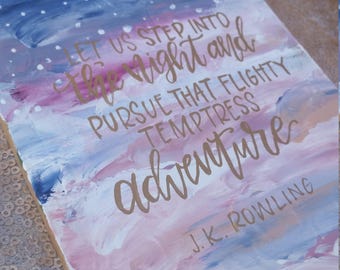 LET US STEP INTO
the night and
PURSUE THAT FLIGHTY
TEMPTRESS
adventure
J.K. ROWLING